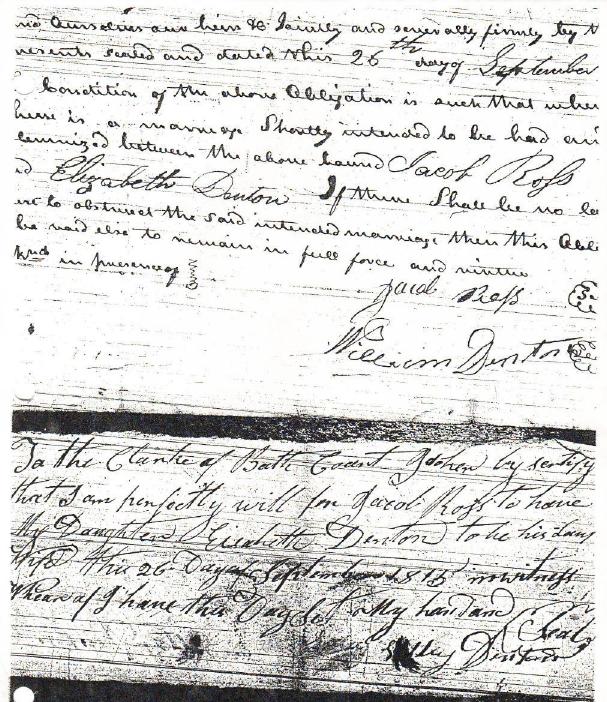 and ourselves our heirs &c Jointly and severally firmly by th
presents sealed and dated this 26th day of September
Condition of the above Obligation is such that wher
there is a marriage Shortly intended to be had an
lemnized between the above bound Jacob Ross
d Elizabeth Denton If there Shall be no la
se to obstruct the said intended marriage then this Obli
be void else to remain in full force and virtue
in presence of
Jacob Ross
William Denton
To the Clarke of Bath Coart
that I am perfectly will for Jacob Ross to have
My Daughter Elisabeth Denton to be his
Wife this 26 Day of September 1815
Whear of I have this my hand and
Seal
Denton